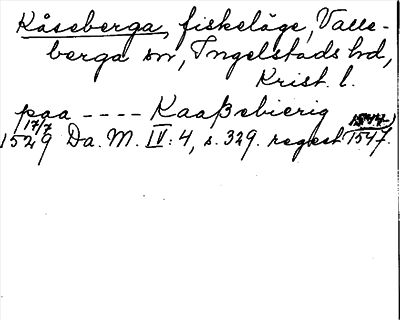 Kåseberga, fiskeläge, Valle-
berga sn, Ingelstads hd,
Krist. l.
paa ---- Kaaßebierig
17/7 1529 Da. M. IV: 4, s. 329. regest 1547.